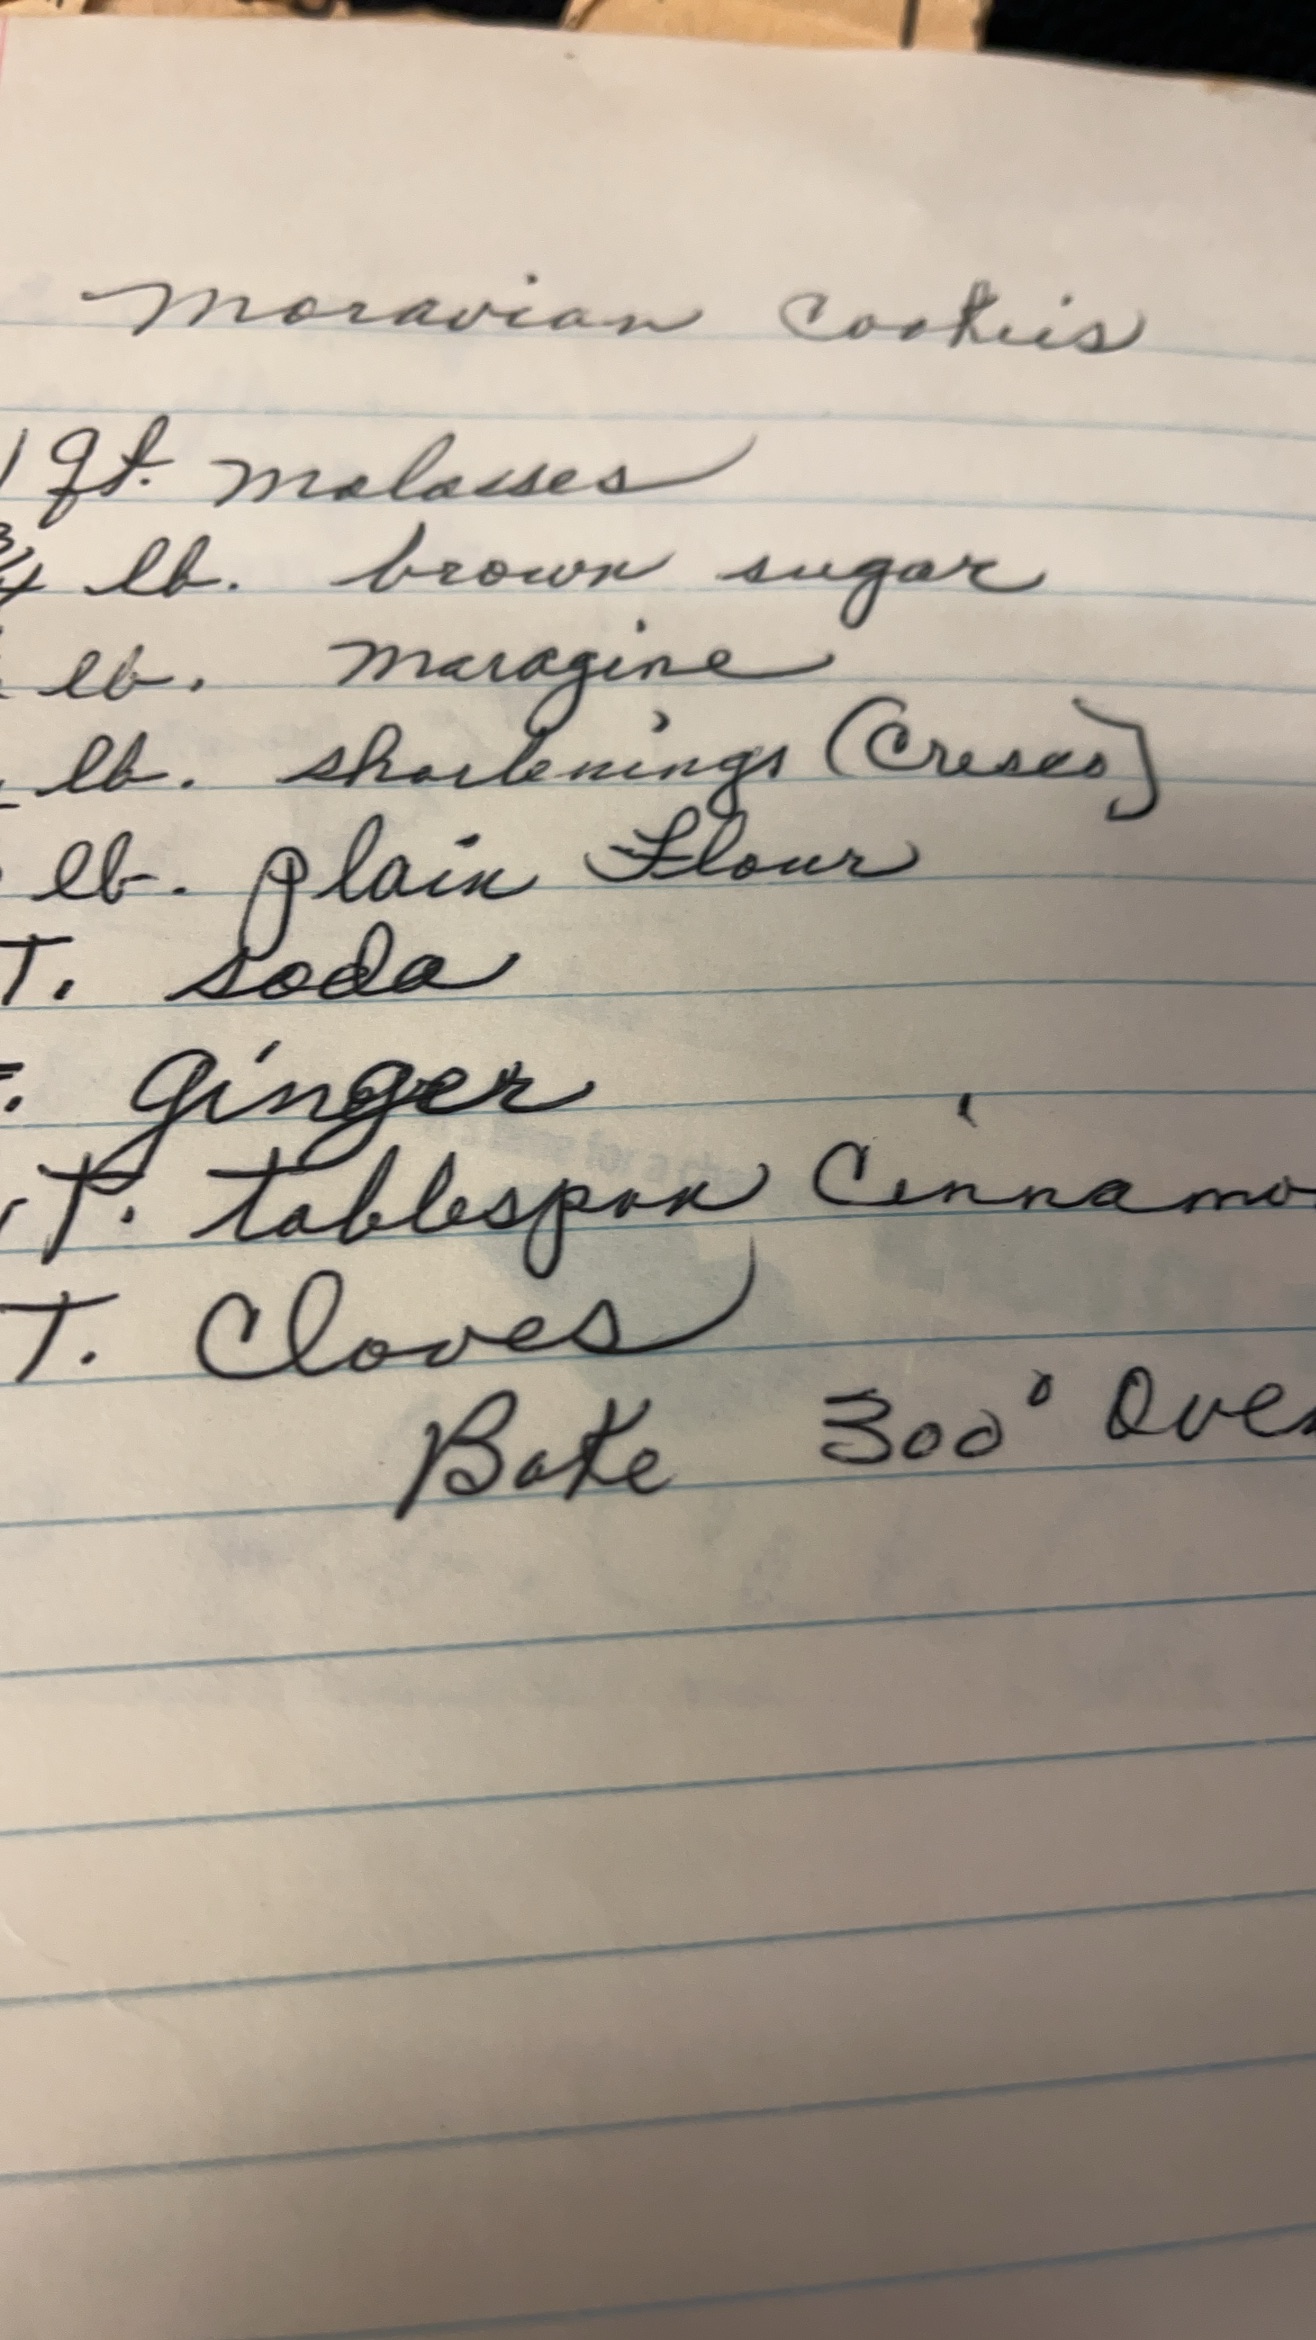 Moravian Cookies
1 qt. molasses
3/4 lb. brown sugar
lb. maragine
lb. shortenings (Cresco)
lb. plain Flour
T. soda
ginger
T. tablespon Cinnamo
T. Cloves
Bake 300° Oven